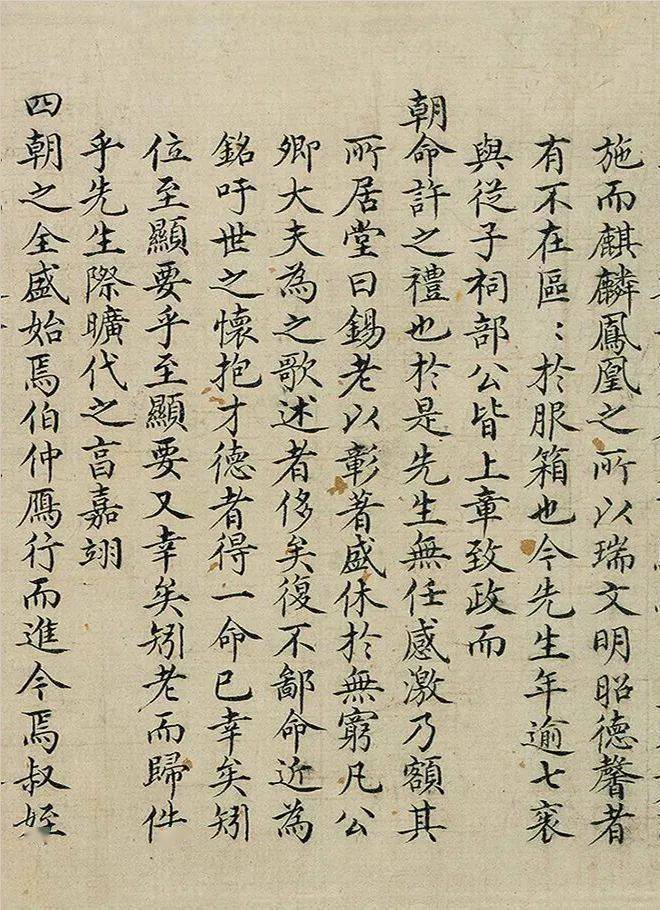 施而麒麟鳳凰之所以瑞文明昭德馨者
有不在區〻於服箱也今先生年逾七袠
與從子祠部公皆上章致政而
朝命許之禮也於是先生無任感激乃額其
所居堂曰錫老以彰著盛休於無窮凡公
卿大夫為之歌述者侈矣復不鄙命近為
銘吁世之懷抱才德者得一命已幸矣矧
位至顯要乎至顯要又幸矣矧老而歸休
乎先生際曠代之亯嘉翊
四朝之全盛始焉伯仲鴈行而進今焉叔姪